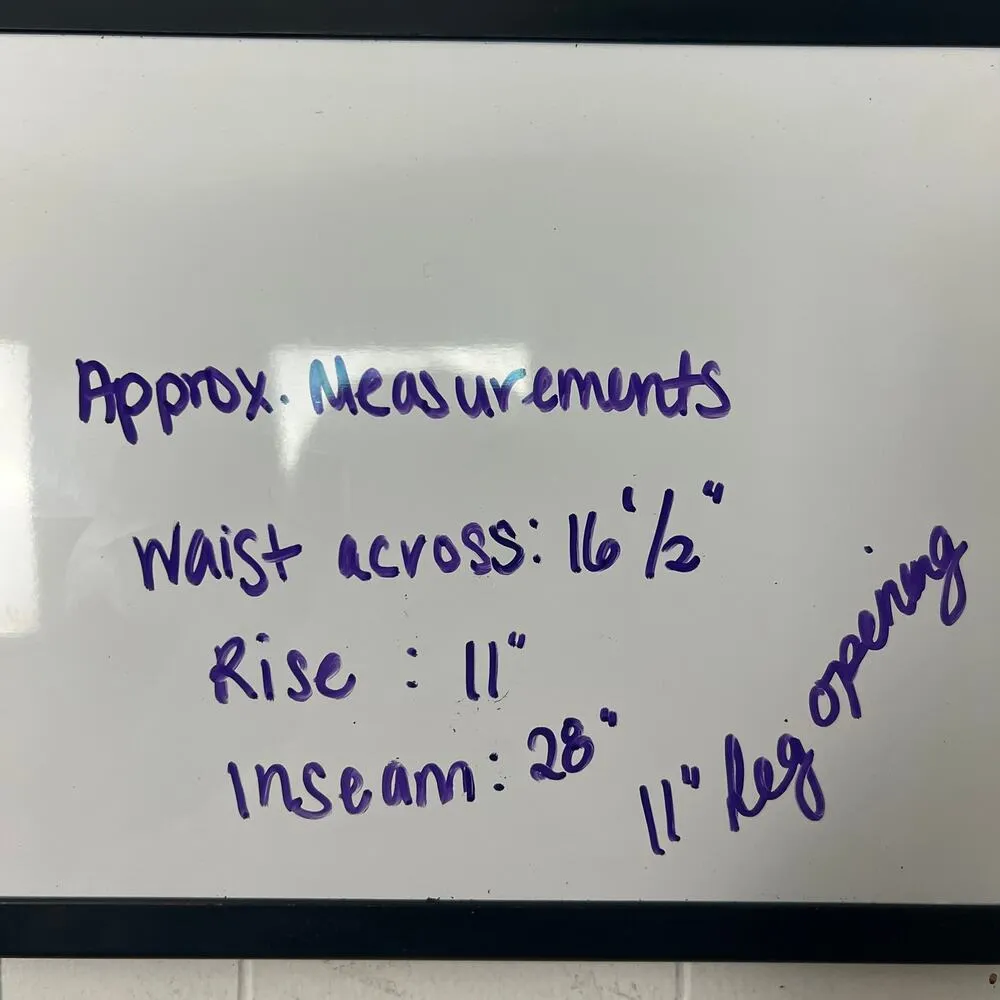 Approx. Measurements
Waist across: 16 1/2"
Rise : 11"
Inseam: 28"
11" leg opening